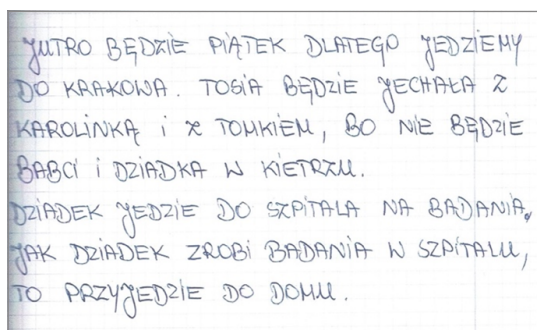 JUTRO BĘDZIE PIĄTEK DLATEGO JEDZIEMY
DO KRAKOWA. TOSIA BĘDZIE JECHAŁA Z
KAROLINKĄ I Z TOMKIEM, BO NIE BĘDZIE
BABCI I DZIADKA W KIETRZU.
DZIADEK JEDZIE DO SZPITALA NA BADANIA,
JAK DZIADEK ZROBI BADANIA W SZPITALU,
TO PRZYJEDZIE DO DOMU.